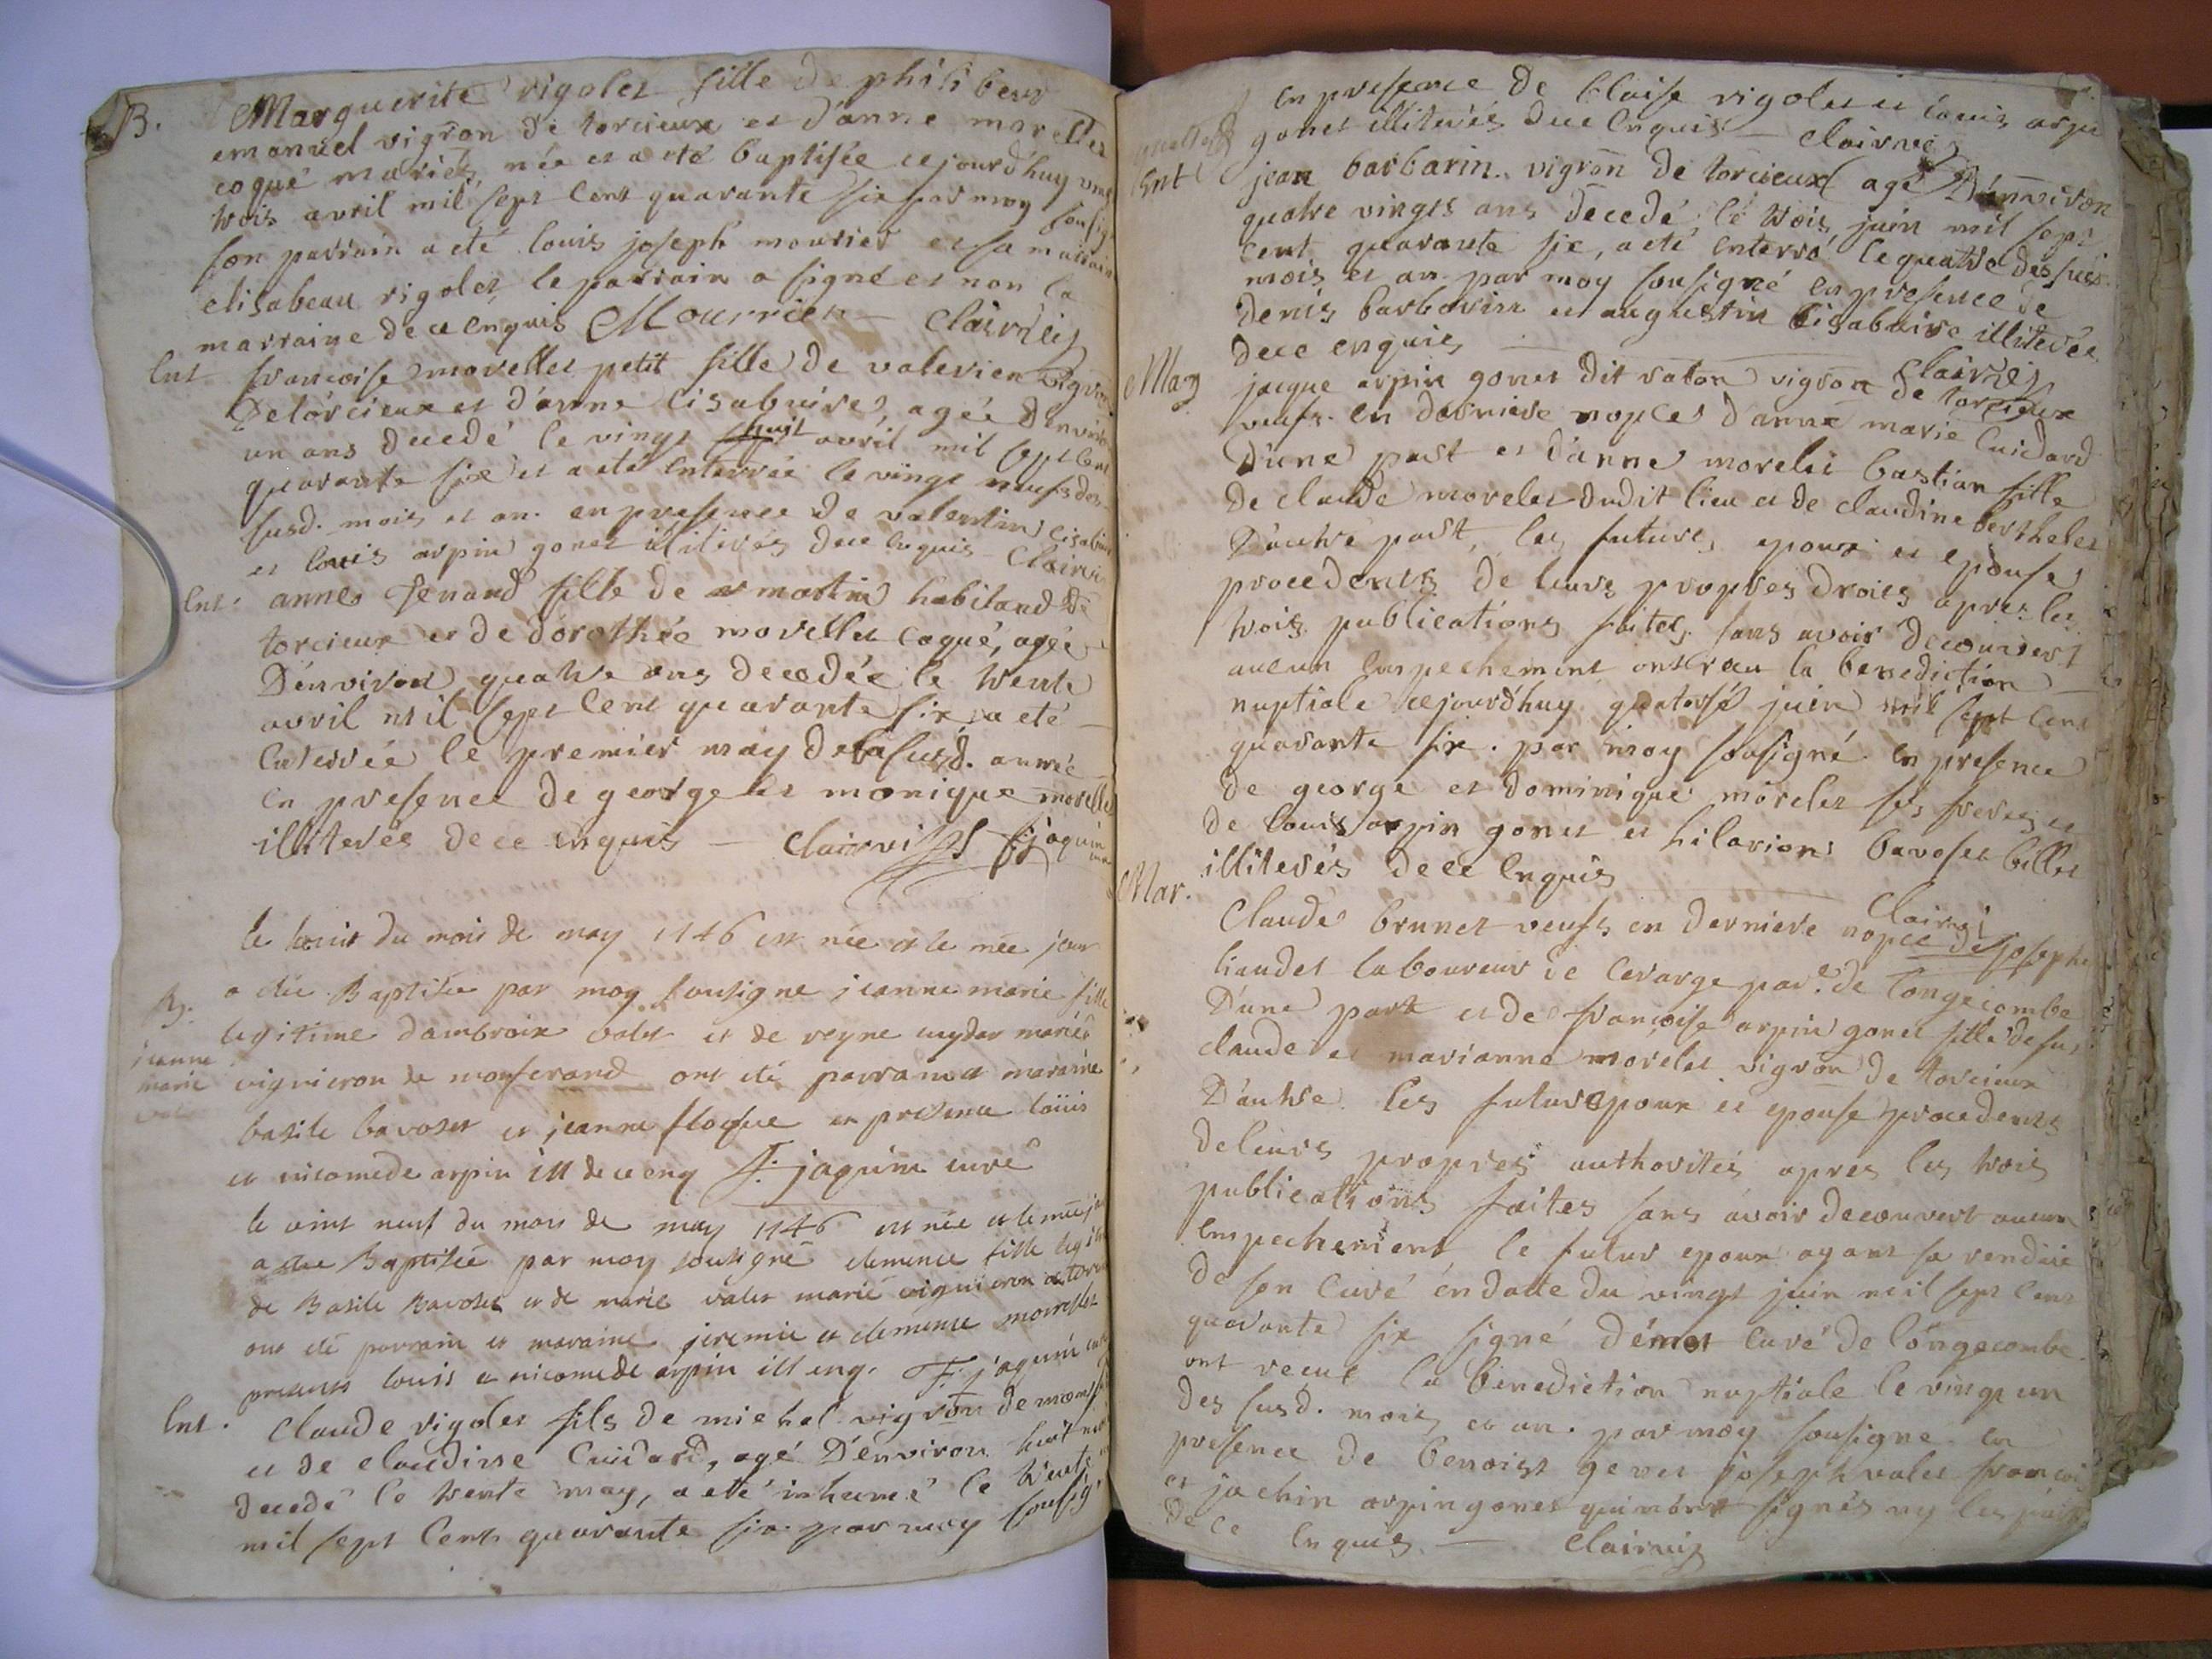 B. Marguerite rigolet fille de philibeur
emanuel vigron de torcieux et d'anne morellet
coque mariés, née et a eté baptisée cejourd'huy vint
trois avril mil sept cent quarante six par moy sousig
son parrain a eté louis joseph mourier et sa marraine
elisabeau rigolet, le parrain a signé et non la
marraine de ce enquis Mourrier — Clairvis
Ent françoise morellet petit fille de valerien vigron
De torcieux et d'anne lisabaires, agée d'environ
un ans decedé le vingt huit avril mil sept cent
quarante six et a eté Enterrée le vingt neufs des
susd. mois et an. en presence de valentin
et louis arpin gonet illiterés de ce enquis Clairvis
Ent. anne Jenand fille de martin habitand de
torcieux et de dorothée morellet coqué, agée
D'environ quatre ans decedée le trente
avril mil sept cent quarante six, a eté
Enterrée le premier may de la susd. année
en presence de george et monique morellet
illiterés de ce enquis — Clairvis jaquin
le huit du mois de may 1746 est née et le mée jour
B. a été Baptisée par moy sousigne jeanne marie fille
legitime d'ambroix valet et de reyne mariés
jeanne
marie vignieron de monferand ont été parrain et maraine
basile bavoset et jeanne en presence loüis
et nicomede arpin ill de ce enq F. jaquin curé
le vint neuf du mois de may 1746 est née et le mée jour
a été Baptisée par moy sousigné clemence fille legit
de Basile Bavoset et de marie valet marié vignieron de torcieu
ont été parrain et maraine jeremie et clemence morellet
presents louis et nicomede arpin ill enq. F. jaquin curé
Ent. Claude rigolet fils de michel vigron de monf
et de claudine Cuidard, agé D'environ huit
decedé le trente may, a eté inhumé le trente
mil sept cent quarante six par moy sousig
En presence de blaise rigolet et louis arpi
gonet illiterés de ce enquis — Clairvis
Ent jean barbarin vigron de torcieux agé D'environ
quatre vingts ans decedé le trois juin mil sept
cent quarante six, a eté enterré le quatre des sus.
mois et an par moy sousigné en presence de
denis barbarin et augustin lisabaire illiterés
de ce enquis — Clairvis
Mar jacque arpin gonet dit raton vigron de torcieux
veufs en derniere nopces d'anne marie Cuidard
D'une part et d'anne morelet bastian fille
De claude morelet dudit lieu et de claudine berthelet
D'autre part, les futurs epoux et epouse
procedents de leurs propres droits apres les
trois publications faites, sans avoir decouvert
aucun Empechement ont receu la benediction
nuptiale cejourd'huy quatorse juin mil sept cent
quarante six. par moy sousigné en presence
de george et dominique morelet ses freres et
de louis arpin gonet et hilarion bavoset billet
illiterés de ce enquis — Clairvis
Mar. Claude brunet veufs en derniere nopce de josephe
liaudet laboureur de Cerarge par.e de Longecombe
D'une part et de françoise arpin gonet fille de fu
claude et marianne morelet vigron de torcieux
D'autre. les futur epoux et epouse procedents
de leurs propres authorités apres les trois
publications faites sans avoir decouvert aucun
Empechement le futur epoux ayant sa rendüe
de son Curé en date du vingt juin mil sept cent
quarante six signé curé de Longecombe.
ont receut la benediction nuptiale le vingt un
des susd. mois et an. par moy sousigne. en
presence de benoist joseph valet françoi
et jochin arpin gonet signés ny les
de ce enquis. — Clairvis